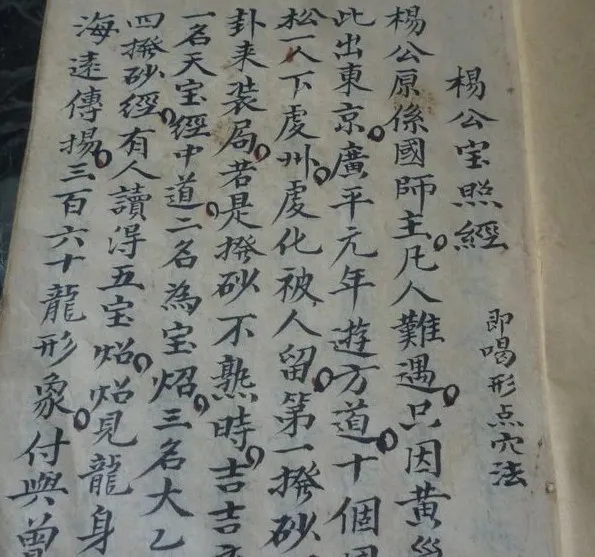 楊公宝照經
即喝形点穴法
楊公原係國師主。凡人難遇。只因黃
此出東京。廣平元年遊方道。十個
松一人下虔州。虔化被人留。第一撥砂
卦来装局。若是撥砂不熟時。吉吉
一名天宝經中道。二名為宝炤。三名大乙
四撥砂經。有人讀得五宝炤。炤見龍身
海遠傳揚。三百六十龍形象。付與曾